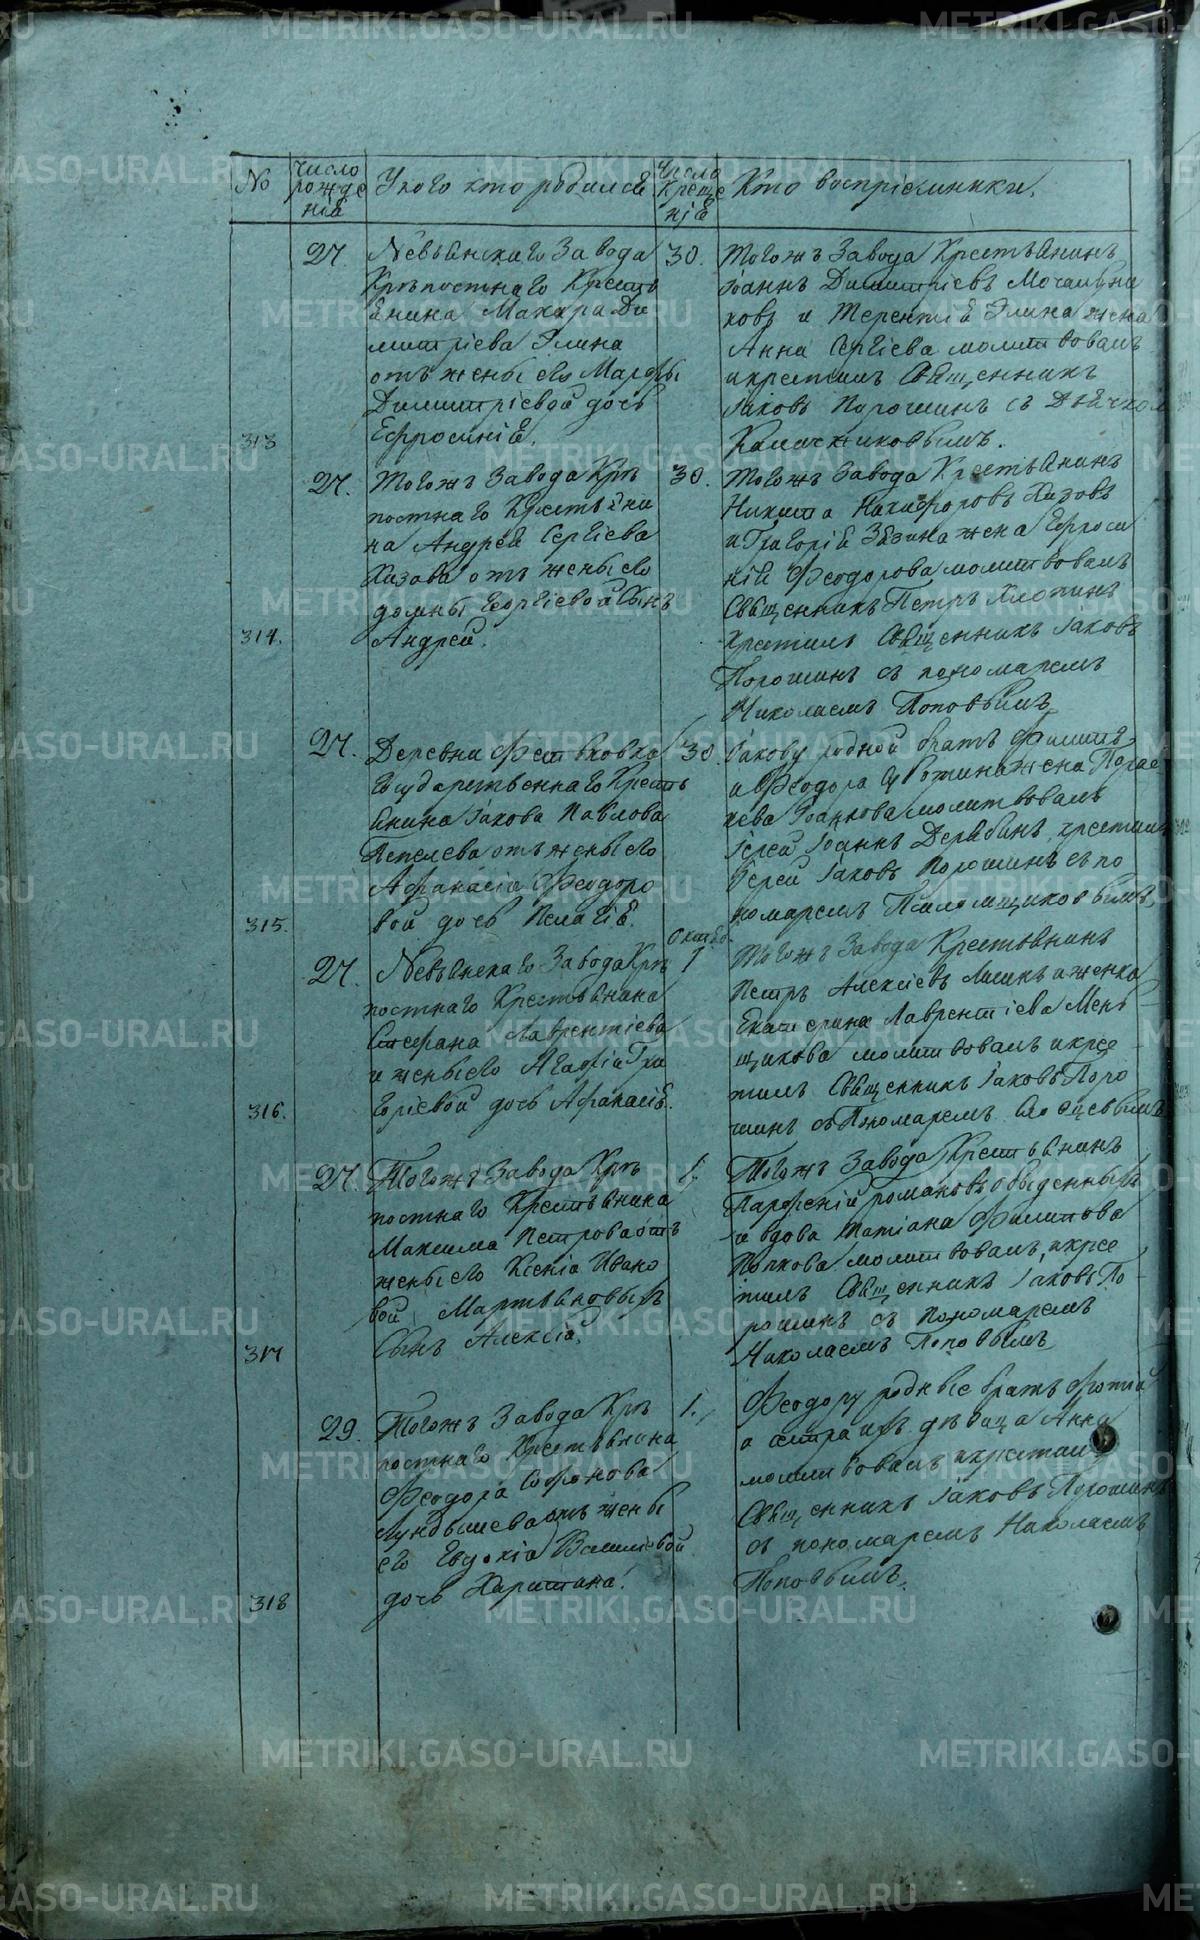 №
Число рожденія
У кого кто родился
Число крещенія
Кто воспріемники.
313
27.
Невьянскаго Завода
Крѣпостнаго Кресть
янина Макара Ди
митріева Элина
отъ жены его Марфы
Димитріевой дочь
Ефросинія.
30.
Тогожъ Завода Крестьянинъ
Іоаннъ Димитріевъ Мочальни
ковъ и Терентія Элина жена
Анна Сергіева молитвовалъ
и крестилъ Священникъ
Іаковъ Порошинъ съ Дьячком
Калачниковымъ.
314.
27.
Тогожъ Завода Крѣ
постнаго Крестьяни
на Андрея Сергіева
Хизова отъ жены его
домны Георгіевой Сынъ
Андрей.
30.
Тогожъ Завода Крестьянинъ
Никита Никифоровъ Хизовъ
и Григорія жена Ефроси
нія Феодорова молитвовалъ
Священникъ Петръ Хлопинъ
Крестилъ Священникъ Іаковъ
Порошинъ съ пономаремъ
Николаемъ Поповымъ
315.
27.
Деревни
Государственнаго Кресть
янина Іакова Павлова
Пепелева отъ жены его
Афанасіи Феодоро
вой дочь Пелагія.
30.
Іакову родной братъ Филипъ
и Феодора жена Пелаг
іева молитвовалъ
Іерей Іоаннъ Дерябинъ, крестилъ
Іерей Іаковъ Порошинъ съ по
номаремъ
316.
27.
Невьянскаго Завода Крѣ
постнаго Крестьянина
Стефана Лаврентіева
и жены его Агафіи Гри
горіевой дочь Афанасія.
Октяб.
1
Тогожъ Завода Крестьянинъ
Петръ Алексіевъ и женка
Екатерина Лаврентіева Мень
щикова молитвовалъ и кре
тилъ Священникъ Іаковъ Поро
шинъ съ Пономаремъ
317
27.
Тогожъ Завода Крѣ
постнаго Крестьянина
Максима Петрова отъ
жены его Ксеніи Ивано
вой Мартьяновыхъ
Сынъ Алексій.
1.
Тогожъ Завода Крестьянинъ
Парфеній романовъ обыденныхъ
и вдова Татіана Филипова
Попкова молитвовалъ и кре
тилъ Священникъ Іаковъ По
рошинъ съ пономаремъ
Николаемъ Поповымъ
318
29.
Тогожъ Завода Крѣ
постнаго Крестьянина
Феодора Софронова
отъ жены
его Евдокіи Васильевой
дочь Харитина.
1.
Феодору родные братъ Фотій
и сестра ихъ дѣвица Анна
молитвовалъ и крестилъ
Священникъ Іаковъ Порошинъ
съ пономаремъ Николаемъ
Поповымъ.
METRIKI.GASO-URAL.RU